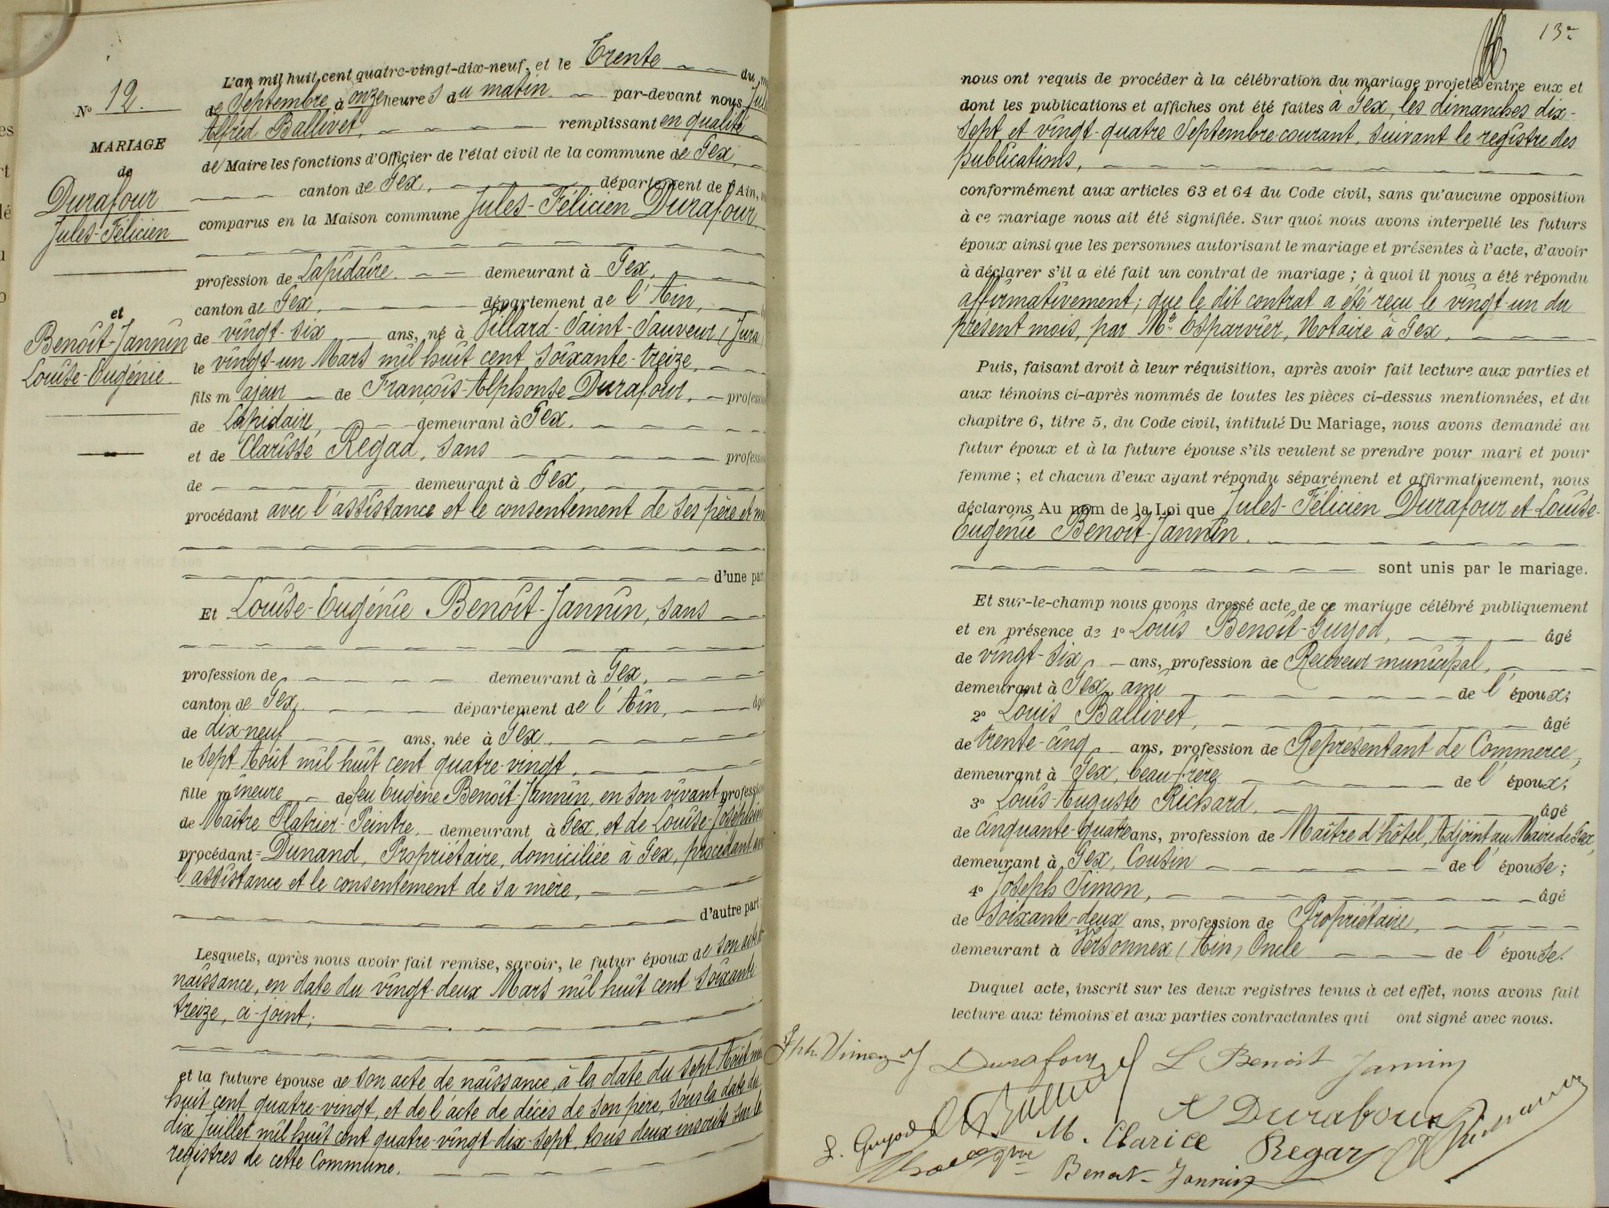 N° 12.
MARIAGE
de
Durafour
Jules-Félicien
et
Benoît-Jannin
Louise-Eugénie
L'an mil huit cent quatre-vingt-dix-neuf, et le Trente du
de Septembre à onze heures du matin par-devant nous
Alfred Ballivet, remplissant en qualité
de Maire les fonctions d'Officier de l'état civil de la commune de Gex,
canton de Gex, département de l'Ain,
comparus en la Maison commune Jules-Félicien Durafour
profession de Lapidaire demeurant à Gex,
canton de Gex, département de l'Ain,
de vingt-six ans, né à Villard-Saint-Sauveur (Jura
le vingt-un Mars mil huit cent soixante-treize,
fils majeur de François-Alphonse Durafour, profess
de Lapidaire, demeurant à Gex,
et de Clarisse Regad, sans profess
de demeurant à Gex,
procédant avec l'assistance et le consentement de ses père et m
d'une part
Et Louise-Eugénie Benoît-Jannin, sans
profession de demeurant à Gex,
canton de Gex, département de l'Ain,
de dix-neuf ans, née à Gex
le sept Août mil huit cent quatre-vingt,
fille mineure de feu Eugène Benoît-Jannin, en son vivant profession
de Maître Plâtrier-Peintre, demeurant à Gex, et de Louise-Joséphine
procédant = Dunand, Propriétaire, domiciliée à Gex, procédant avec
l'assistance et le consentement de sa mère,
d'autre part
Lesquels, après nous avoir fait remise, savoir, le futur époux de son acte de
naissance, en date du vingt-deux Mars mil huit cent soixante
treize, ci-joint;
et la future épouse de son acte de naissance, à la date du sept Août mil
huit cent quatre-vingt, et de l'acte de décès de son père, sous la date du
dix Juillet mil huit cent quatre-vingt-dix-sept, tous deux inscrits sur les
registres de cette Commune.
nous ont requis de procéder à la célébration du mariage projeté entre eux et
dont les publications et affiches ont été faites à Gex, les dimanches dix-
sept et vingt-quatre Septembre courant, suivant le registre des
publications,
conformément aux articles 63 et 64 du Code civil, sans qu'aucune opposition
à ce mariage nous ait été signifiée. Sur quoi nous avons interpellé les futurs
époux ainsi que les personnes autorisant le mariage et présentes à l'acte, d'avoir
à déclarer s'il a été fait un contrat de mariage ; à quoi il nous a été répondu
affirmativement; que le dit contrat a été reçu le vingt-un du
présent mois, par Me Esparvier, Notaire à Gex,
Puis, faisant droit à leur réquisition, après avoir fait lecture aux parties et
aux témoins ci-après nommés de toutes les pièces ci-dessus mentionnées, et du
chapitre 6, titre 5, du Code civil, intitulé Du Mariage, nous avons demandé au
futur époux et à la future épouse s'ils veulent se prendre pour mari et pour
femme ; et chacun d'eux ayant répondu séparément et affirmativement, nous
déclarons Au nom de la Loi que Jules-Félicien Durafour et Louise-
Eugénie Benoît-Jannin.
sont unis par le mariage.
Et sur-le-champ nous avons dressé acte de ce mariage célébré publiquement
et en présence de 1° Louis Benoît-Guyod, âgé
de vingt-six ans, profession de Receveur municipal,
demeurant à Gex, ami de l'époux;
2° Louis Ballivet, âgé
de trente-cinq ans, profession de Représentant de Commerce,
demeurant à Gex, beau-frère de l'époux;
3° Louis-Auguste Richard, âgé
de cinquante-quatre ans, profession de Maître d'hôtel, Adjoint au Maire de Gex,
demeurant à Gex, Cousin de l'épouse;
4° Joseph Simon, âgé
de soixante-deux ans, profession de Propriétaire,
demeurant à Versonnex (Ain) Oncle de l'épouse.
Duquel acte, inscrit sur les deux registres tenus à cet effet, nous avons fait
lecture aux témoins et aux parties contractantes qui ont signé avec nous.
Durafour J L Benoit Jannin
A Durafour
L. Guyod M. Clarice Regad
Benoit-Jannin